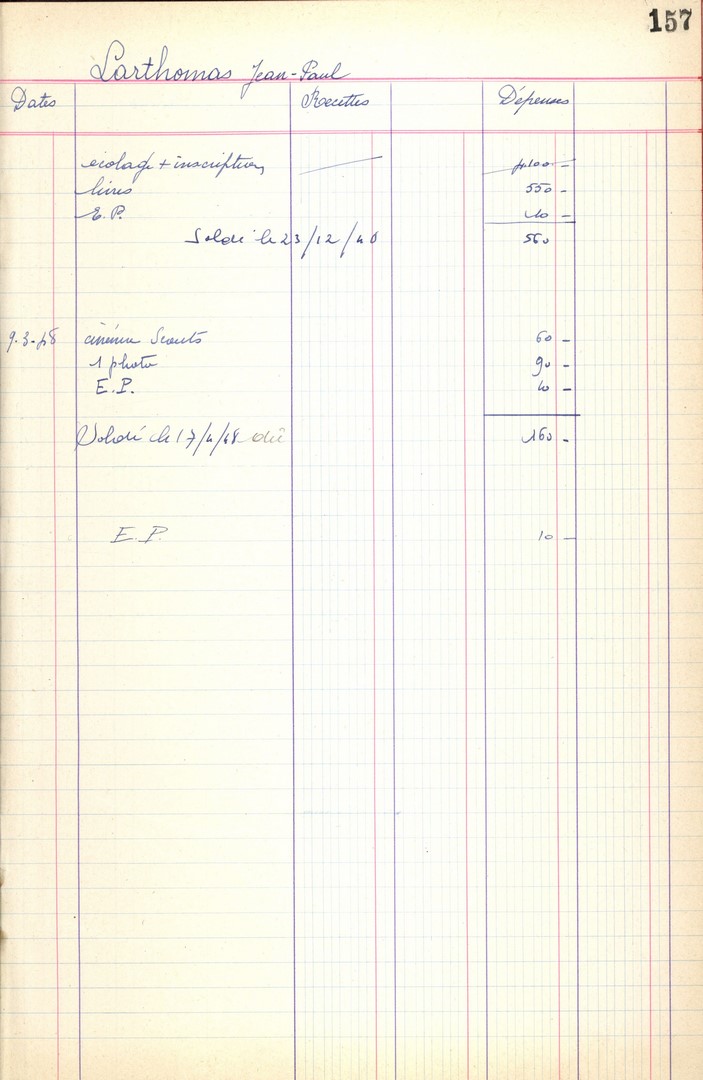 157
Larthomas Jean-Paul
Dates Recettes Dépenses
écolage + inscription
livres 550 -
E.P. 10 -
Soldé le 23/12/40 560
9.3.48 cinéma Scouts 60 -
1 photo 90 -
E.P. 10 -
Soldé le 17/4/48 dû 160 -
E.P. 10 -